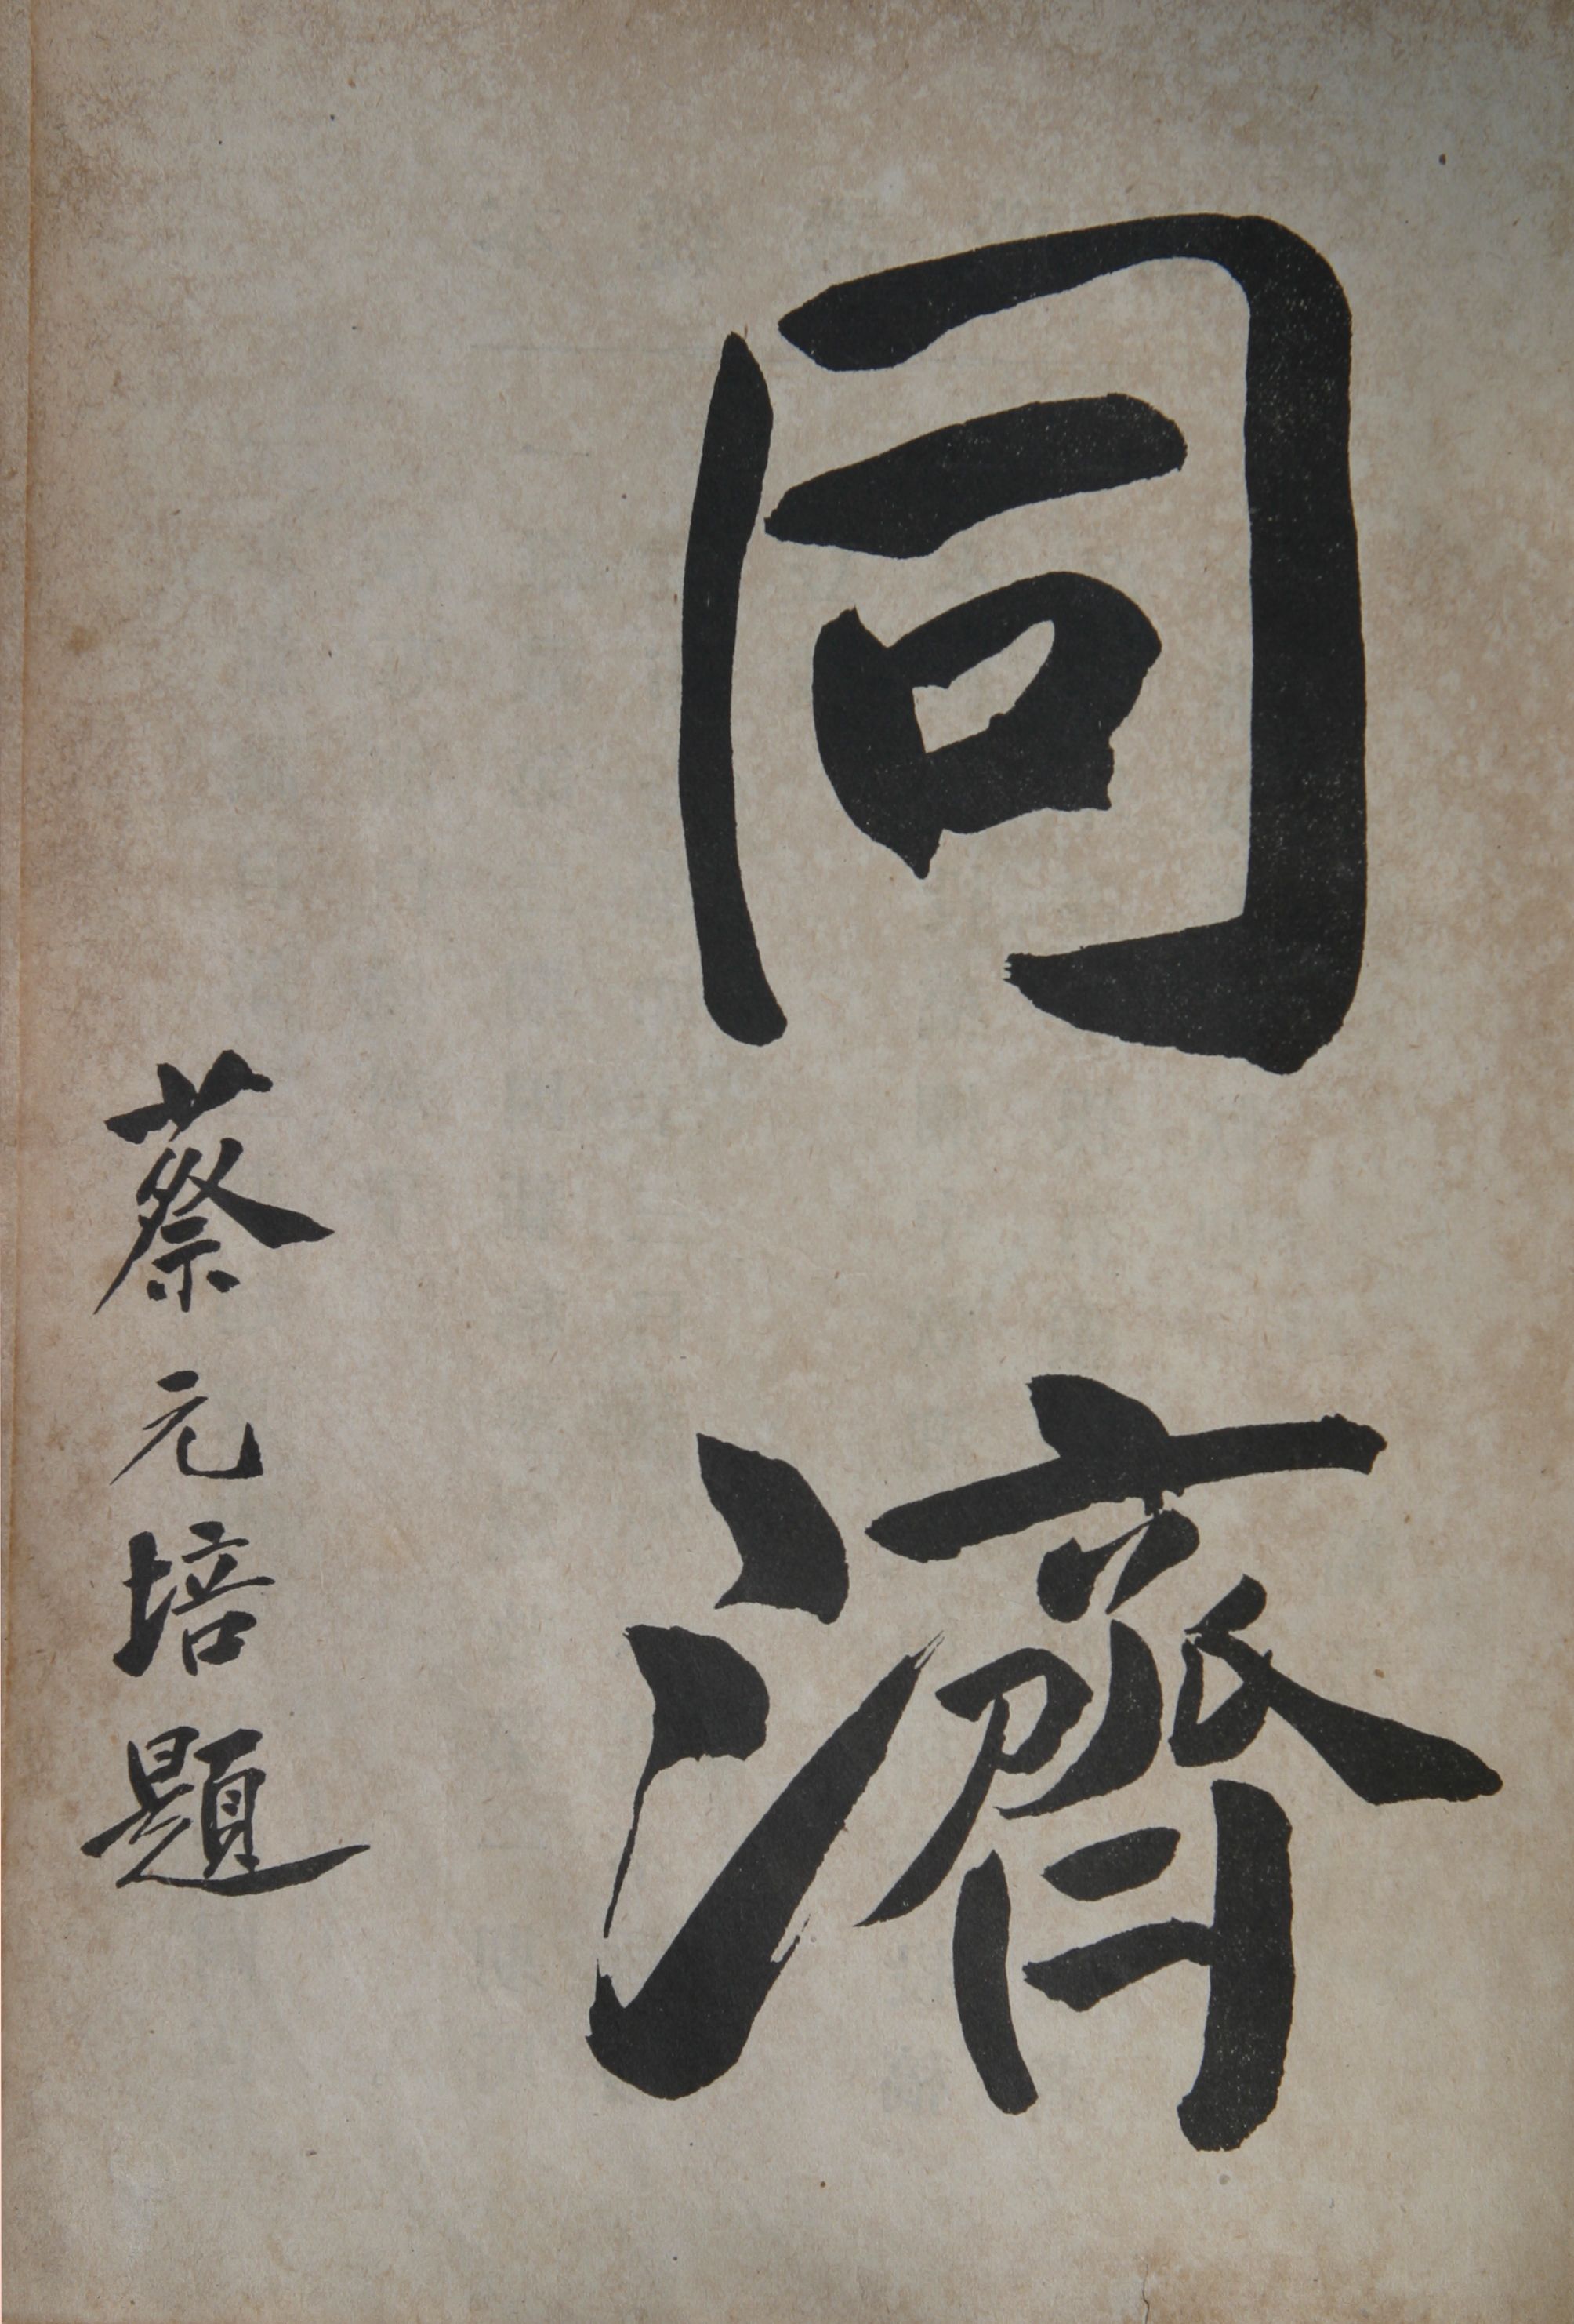 同濟
蔡元培題